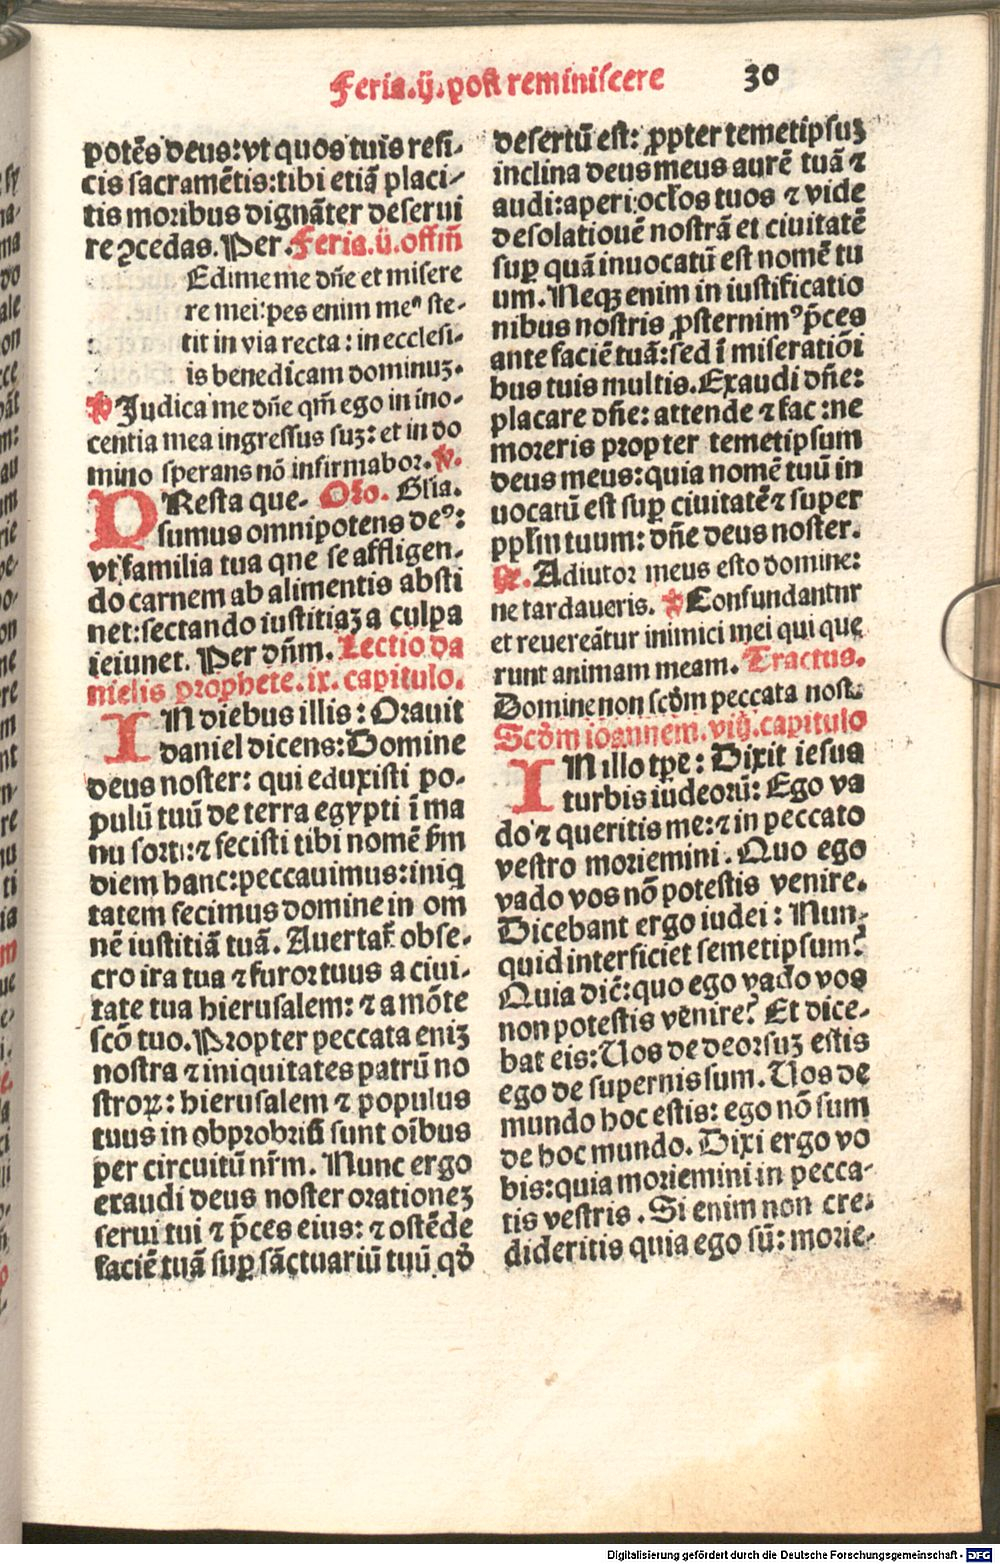 Feria.ij. post reminiscere 30
potēs deus: vt quos tuis refi-
cis sacramētis: tibi etiā placi-
tis moribus dignāter deserui
re ꝯcedas. Per. Feria.ij. offm̄
Edime me dn̄e et misere
re mei: pes enim meꝰ ste-
tit in via recta: in ecclesi-
is benedicam dominuꝫ.
Judica me dn̄e qm̄ ego in ino-
centia mea ingressus suꝫ: et in do
mino sperans nō infirmabor. ℣.
PResta que- Oro. Glia.
sumus omnipotens deꝰ:
vt familia tua que se affligen-
do carnem ab alimentis absti
net: sectando iustitiaꝫ a culpa
ieiunet. Per dn̄m. Lectio da
nielis prophete. ix. capitulo.
IN diebus illis: Orauit
daniel dicens: Domine
deus noster: qui eduxisti po-
pulū tuū de terra egypti ī ma
nu forti: ⁊ fecisti tibi nomē ẜm
diem hanc: peccauimus: iniq
tatem fecimus domine in om
nē iustitiā tuā. Auertat̄ obse-
cro ira tua ⁊ furor tuus a ciui-
tate tua hierusalem: ⁊ a mōte
scō tuo. Propter peccata eniꝫ
nostra ⁊ iniquitates patrū no
stroꝝ: hierusalem ⁊ populus
tuus in obprobriū sunt oībus
per circuitū nr̄m. Nunc ergo
exaudi deus noster orationeꝫ
serui tui ⁊ p̄ces eius: ⁊ ostēde
faciē tuā suꝑ sāctuariū tuū qd̓
desertū est: ꝓpter temetipsuꝫ
inclina deus meus aurē tuā ⁊
audi: aperi ocl̓os tuos ⁊ vide
desolationē nostrā et ciuitatē
suꝑ quā inuocatū est nomē tu
um. Neqꝫ enim in iustificatio
nibus nostris ꝓsternimꝰ p̄ces
ante faciē tuā: sed ī miseratiōi
bus tuis multis. Exaudi dn̄e:
placare dn̄e: attende ⁊ fac: ne
moreris propter temetipsum
deus meus: quia nomē tuū in
uocatū est suꝑ ciuitatē ⁊ super
ppl̓m tuum: dn̄e deus noster.
Gr̄. Adiutor meus esto domine:
ne tardaueris. ℣ Confundantur
et reuereātur inimici mei qui que
runt animam meam. Tractus.
Domine non scd̓m peccata nost.
Scd̓m ioannem. viij. capitulo
IN illo tꝑe: Dixit iesus
turbis iudeorū: Ego va
do ⁊ queritis me: ⁊ in peccato
vestro moriemini. Quo ego
vado vos nō potestis venire.
Dicebant ergo iudei: Nun-
quid interficiet semetipsum?
Quia dic̄: quo ego vado vos
non potestis venire? Et dice-
bat eis: Uos de deorsuꝫ estis
ego de supernis sum. Uos de
mundo hoc estis: ego nō sum
de hoc mundo. Dixi ergo vo
bis: quia moriemini in pecca-
tis vestris. Si enim non cre-
dideritis quia ego sū: morie-
Digitalisierung gefördert durch die Deutsche Forschungsgemeinschaft - DFG